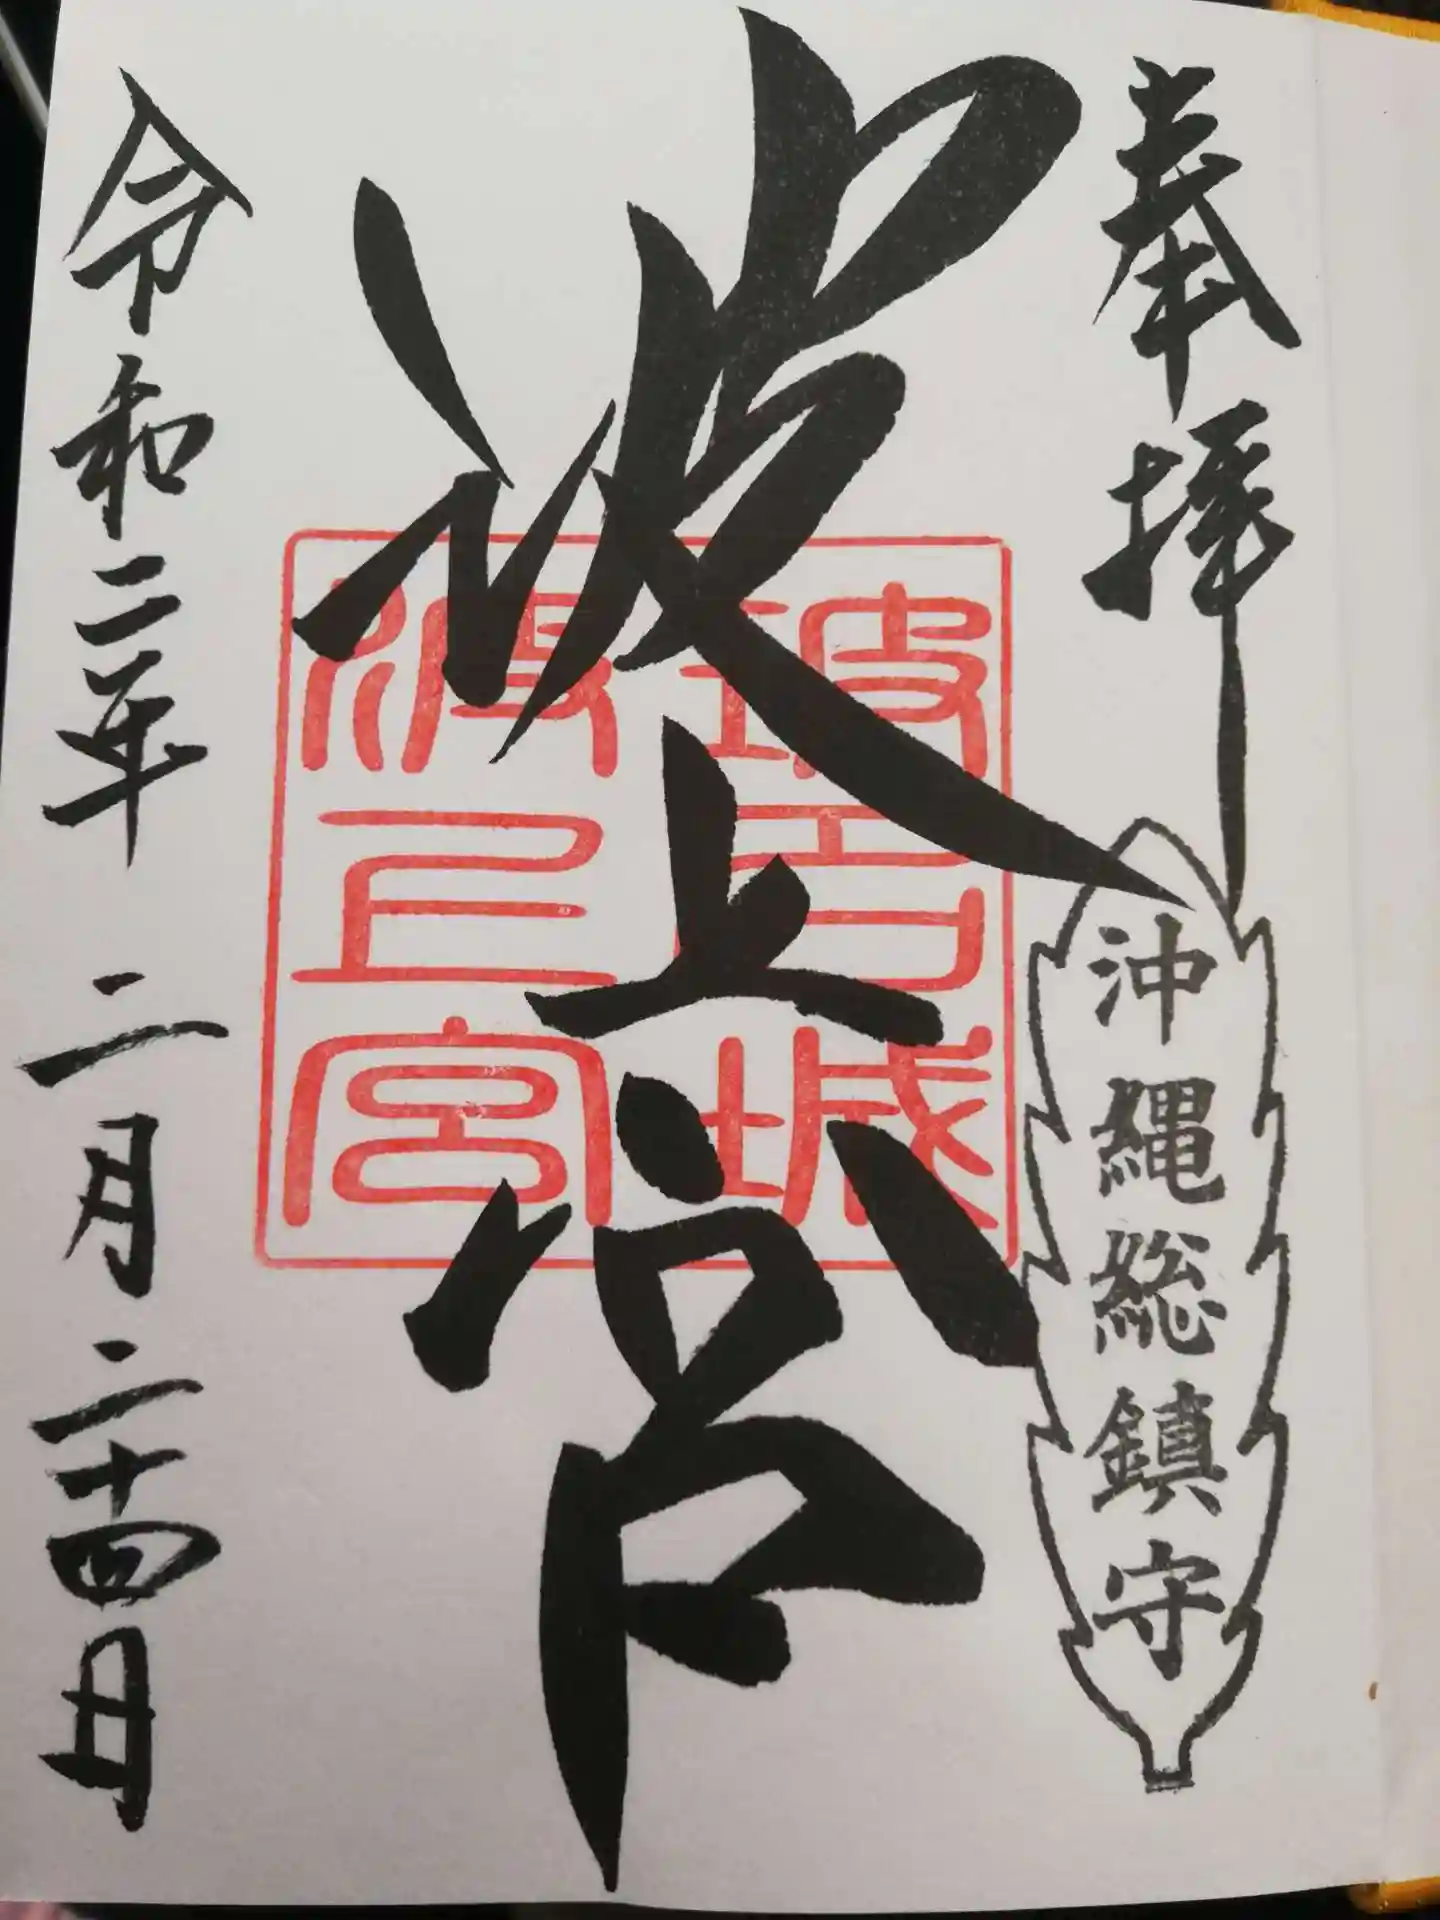 奉拝
沖縄総鎮守
波上宮
琉球城
波上宮
令和二年二月二十四日